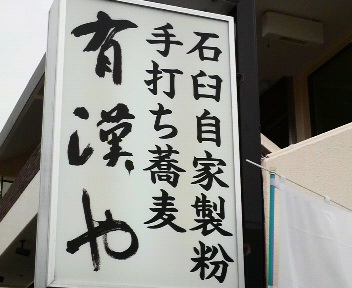 石臼自家製粉
手打ち蕎麦
有漢や